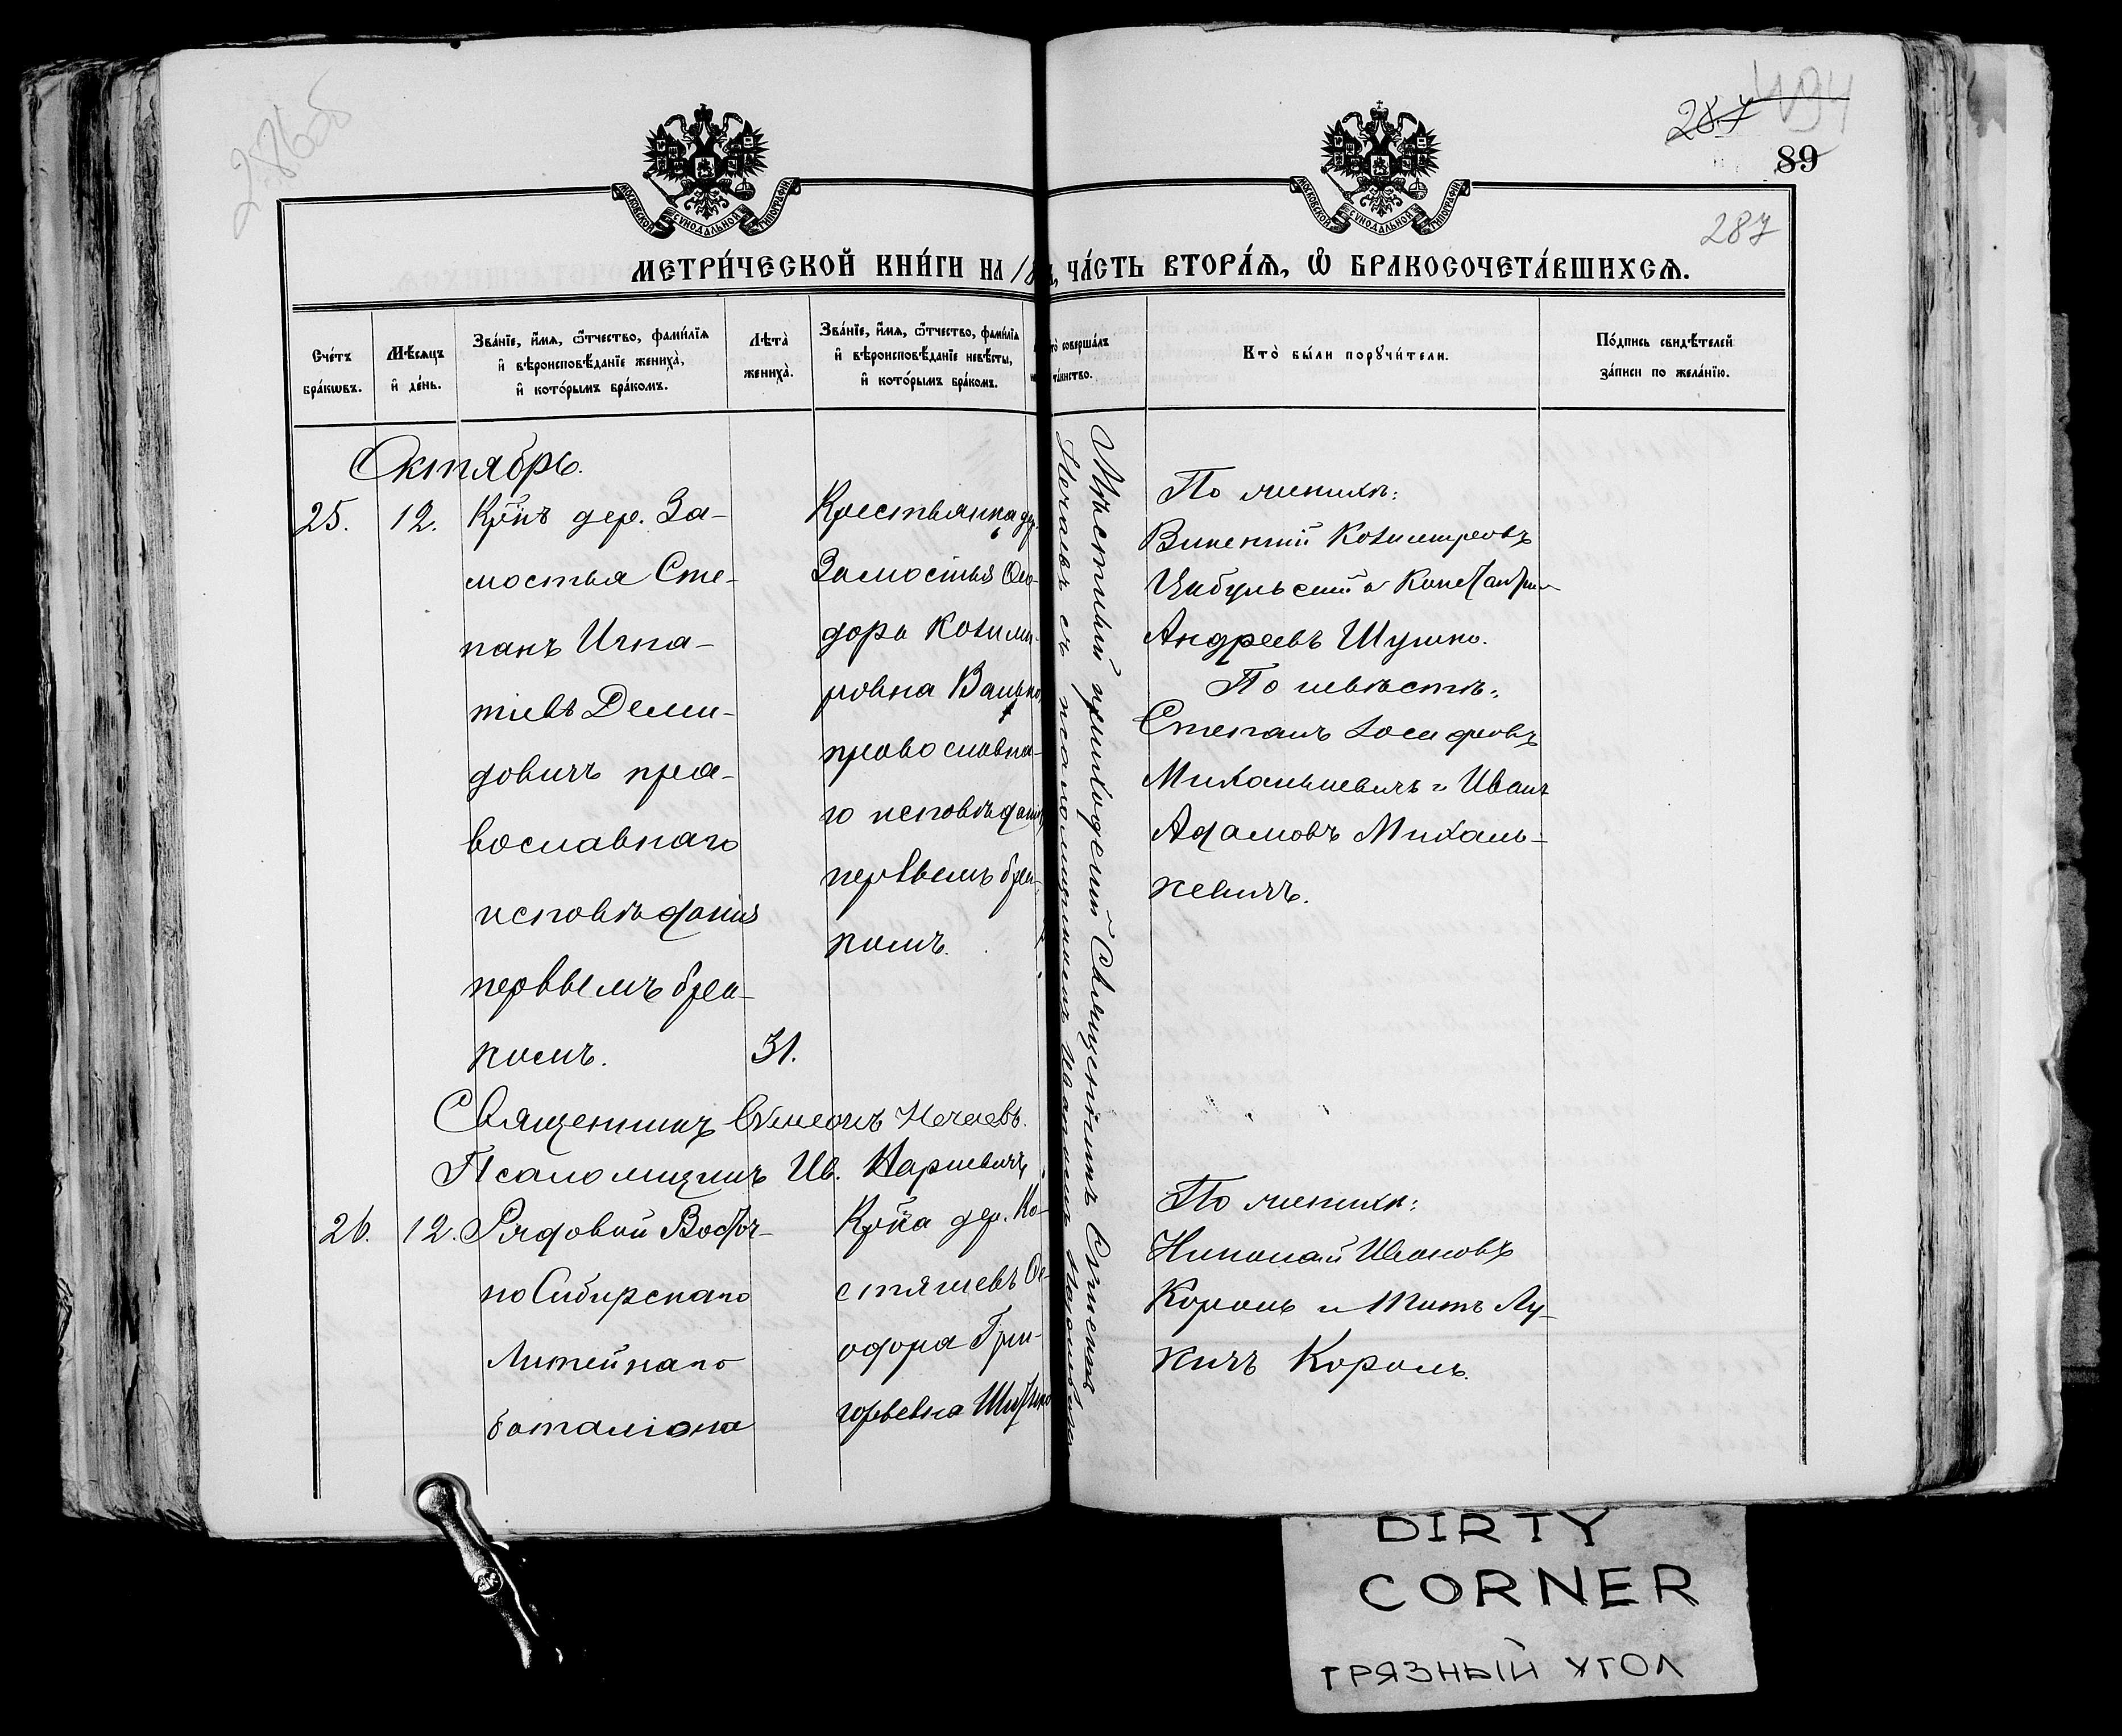 286об
494
287
89
287
МОСКОВСКОЙ СѴНОДАЛЬНОЙ ТИПОГРАФІИ
МОСКОВСКОЙ СѴНОДАЛЬНОЙ ТИПОГРАФІИ
МЕТРИ́ЧЕСКОЙ КНИ́ГИ НА 18
ЧА́СТЬ ВТОРА́Ѧ, Ѽ БРАКОСОЧЕТА́ВШИХСѦ.
Сче́тъ бра́кѡвъ.
Мѣ́сѧцъ и҆ де́нь.
Зва́нїе, и҆́мѧ, ѻ҆́тчество, фами́лїѧ и҆ вѣроисповѣ́данїе жениха̀, и҆ кото́рымъ бра́комъ.
Лѣта̀ жениха̀.
Зва́нїе, и҆́мѧ, ѻ҆́тчество, фами́лїѧ и҆ вѣроисповѣ́данїе невѣ́сты, и҆ кото́рымъ бра́комъ.
то̀ соверша́лъ та́инство.
Кто̀ бы́ли порꙋчи́тели.
По́дпись свидѣ́телей за́писи по жела́нїю.
Октябрь.
25.
12.
Крⷭ҇нъ дер. За-
мостья Сте-
панъ Игна-
тіевъ Деми-
довичъ пра-
вославнаго
исповѣданія
первымъ бра-
комъ.
31.
Крестьянка дер.
Замостья Ѳео-
дора Казими-
ровна
православна-
го исповѣданія
первымъ бра-
комъ.
Мѣстный приходскій Священникъ Симеонъ
Нечаевъ съ псаломщикомъ
По женихѣ:
Викентій Казиміровъ
Цибульскій и Константинъ
Андреевъ Шушко.
По невѣстѣ:
Степанъ Іосифовъ
Михалькевичъ и Иванъ
Адамовъ Михаль-
кевичъ.
Священникъ Симеонъ Нечаевъ.
Псаломщикъ Ив.
26.
12.
Рядовой Восточ-
но Сибирскаго
Линейнаго
баталіона
Крⷭ҇нка дер. Ко-
стяшевъ Ѳе-
одора Гри-
горьевна
По женихѣ:
Николай Ивановъ
Король и Титъ Лу-
кичъ Король.
DIRTY
CORNER
ГРЯЗНЫЙ УГОЛ